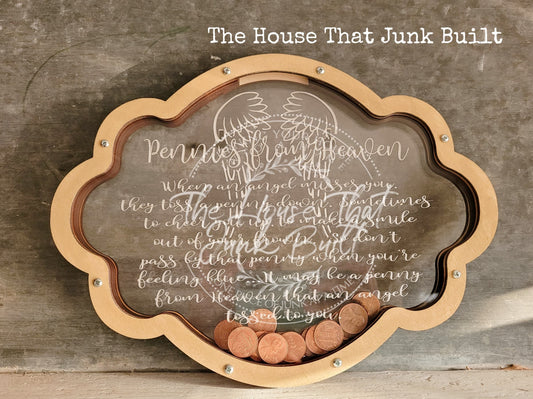 The House That Junk Built
Pennies from Heaven
When an angel misses you
they toss a penny down. Sometimes
to cheer you up, to make a smile
out of your frown. So don't
pass by that penny when you're
feeling blue. It may be a penny
from Heaven that an angel
tossed to you.
The House That
Junk Built